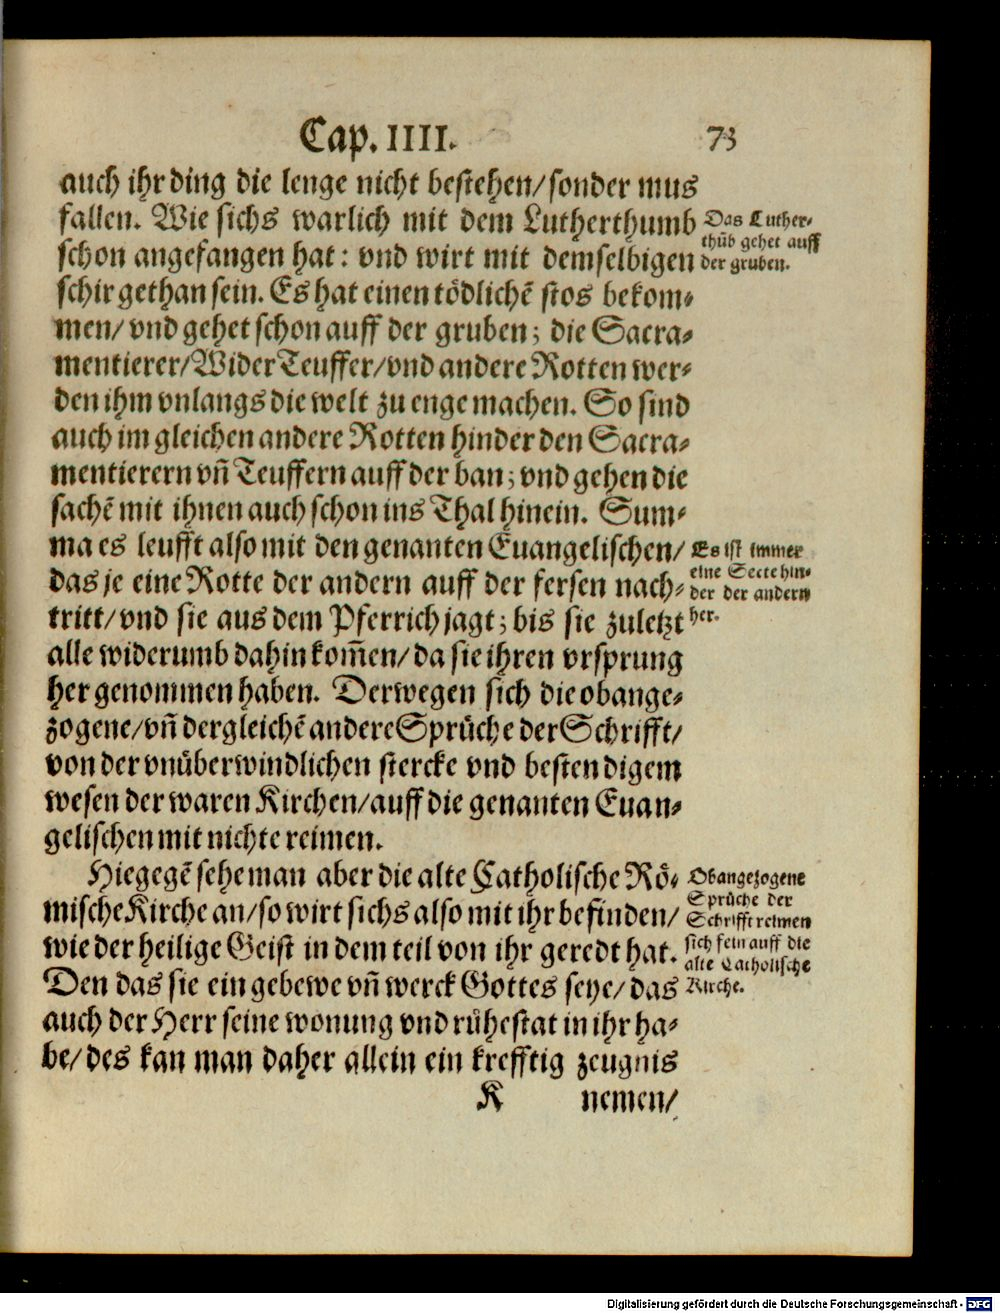 Cap. IIII. 73
auch ihr ding die lenge nicht bestehen/ sonder mus
fallen. Wie sichs warlich mit dem Lutherthumb
schon angefangen hat: vnd wirt mit demselbigen
schir gethan sein. Es hat einen tödlichẽ stos bekom⸗
men/ vnd gehet schon auff der gruben; die Sacra⸗
mentierer/ WiderTeuffer/ vnd andere Rotten wer⸗
den ihm vnlangs die welt zu enge machen. So sind
auch im gleichen andere Rotten hinder den Sacra⸗
mentierern vñ Teuffern auff der ban; vnd gehen die
sachẽ mit ihnen auch schon ins Thal hinein. Sum⸗
ma es leufft also mit den genanten Euangelischen/
das je eine Rotte der andern auff der fersen nach⸗
tritt/ vnd sie aus dem Pferrich jagt; bis sie zuletzt
alle widerumb dahin kom̃en/ da sie ihren vrsprung
her genommen haben. Derwegen sich die obange⸗
zogene/ vñ dergleichẽ andere Sprüche der Schrifft/
von der vnüberwindlichen stercke vnd bestendigem
wesen der waren Kirchen/ auff die genanten Euan⸗
gelischen mit nichte reimen.
Hiegegẽ sehe man aber die alte Catholische Rö⸗
mische Kirche an/ so wirt sichs also mit ihr befinden/
wie der heilige Geist in dem teil von ihr geredt hat.
Den das sie ein gebewe vñ werck Gottes seye/ das
auch der Herr seine wonung vnd rühestat in ihr ha⸗
be/ des kan man daher allein ein krefftig zeugnis
K nemen/
Das Luther⸗
thũb gehet auff
der gruben.
Es ist immer
eine Secte hin⸗
der der andern
her.
Obangezogene
Sprüche der
Schrifft reimen
sich fein auff die
alte Catholische
Kirche.
Digitalisierung gefördert durch die Deutsche Forschungsgemeinschaft - DFG